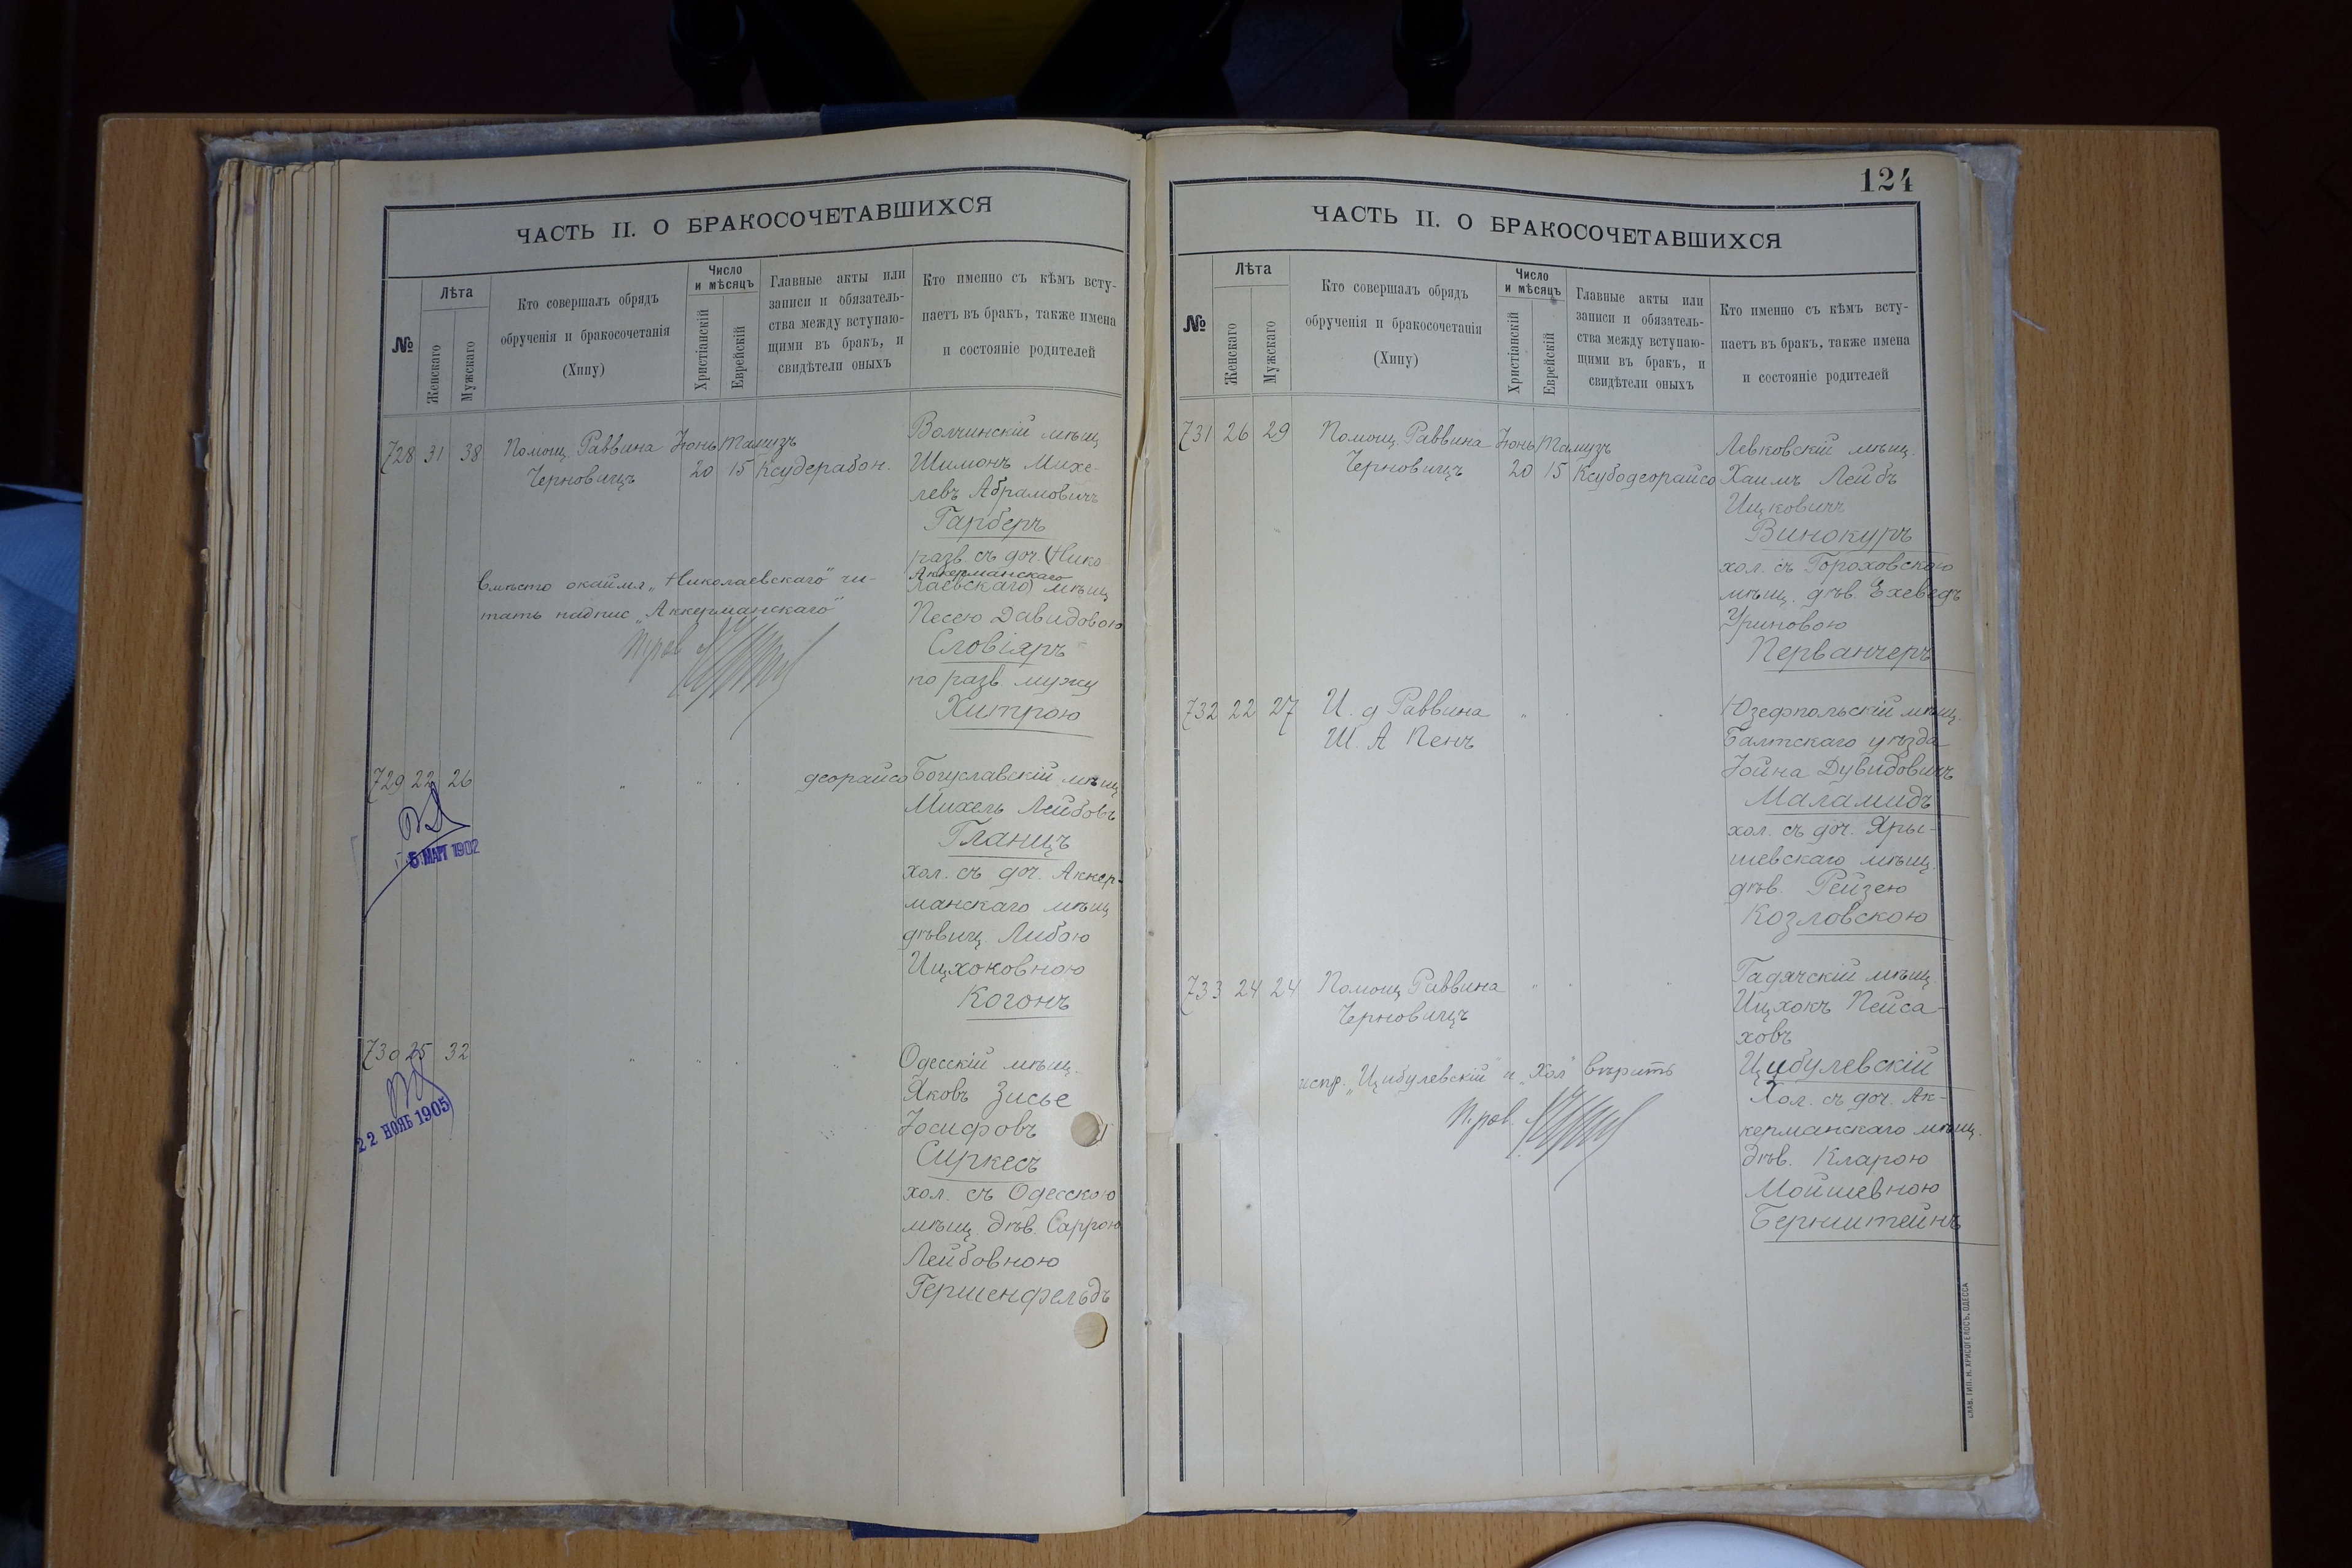 ЧАСТЬ II. О БРАКОСОЧЕТАВШИХСЯ
№
Лѣта
Женскаго
Мужскаго
Кто совершалъ обрядъ
обрученія и бракосочетанія
(Хипу)
Число
и мѣсяцъ
Христіанскій
Еврейскій
Главные акты или
записи и обязатель-
ства между вступаю-
щими въ бракъ, и
свидѣтели оныхъ
Кто именно съ кѣмъ всту-
паетъ въ бракъ, также имена
и состояніе родителей
728 31 38 Помощ. Раввина Іюнь Тамузъ
Черновицъ 20 15 Ксудерабон.
Волчинскій мѣщ
Шимонъ Михе-
левъ Абрамовичъ
Гарберъ
разв. съ доч. (Нико
Аккерманскаго
лаевскаго) мѣщ
Песею Давидовою
Словіяръ
по разв. мужу
Хитрою
вмѣсто окаймл „Николаевскаго" чи-
тать надпис „Аккерманскаго"
Пров.
729 22 26 " " " деорайсо
5 МАРТ 1902
Богуславскій мѣщ
Михель Лейбовъ
Гланцъ
хол. съ доч. Аккер-
манскаго мѣщ
дѣвиц. Либою
Ицхоковною
Когонъ
730 25 32 " " "
22 НОЯБ 1905
Одесскій мѣщ.
Яковъ Зисье
Іосифовъ
Сиркесъ
хол. съ Одесскою
мѣщ. дѣв. Саррою
Лейбовною
Гершенфельдъ
124
ЧАСТЬ II. О БРАКОСОЧЕТАВШИХСЯ
№
Лѣта
Женскаго
Мужскаго
Кто совершалъ обрядъ
обрученія и бракосочетанія
(Хипу)
Число
и мѣсяцъ
Христіанскій
Еврейскій
Главные акты или
записи и обязатель-
ства между вступаю-
щими въ бракъ, и
свидѣтели оныхъ
Кто именно съ кѣмъ всту-
паетъ въ бракъ, также имена
и состояніе родителей
731 26 29 Помощ. Раввина Іюнь Тамузъ
Черновицъ 20 15 Ксубодеорайсо
Левковскій мѣщ.
Хаимъ Лейбъ
Ицковичъ
Винокуръ
хол. съ Гороховскою
мѣщ. дѣв. Ехеведъ
Уриновою
Перванчеръ
732 22 27 И. д Раввина " "
Ш. А Пенъ
Юзефпольскій мѣщ.
Балтскаго уѣзда
Іойна Дувидовичъ
Маламидъ
хол. съ доч. Яры-
шевскаго мѣщ.
дѣв. Рейзею
Козловскою
733 24 24 Помощ Раввина " " "
Черновицъ
Гадячскій мѣщ
Ицхокъ Пейса-
ховъ
Цибулевскій
Хол. съ доч. Ак-
керманскаго мѣщ.
дѣв. Кларою
Мойшевною
Бернштейнъ
испр. „Цибулевскій и „Хол" вѣрить
Пров.
СЛАВ. ТИП. Н. ХРИСОГЕЛОСЪ, ОДЕССА